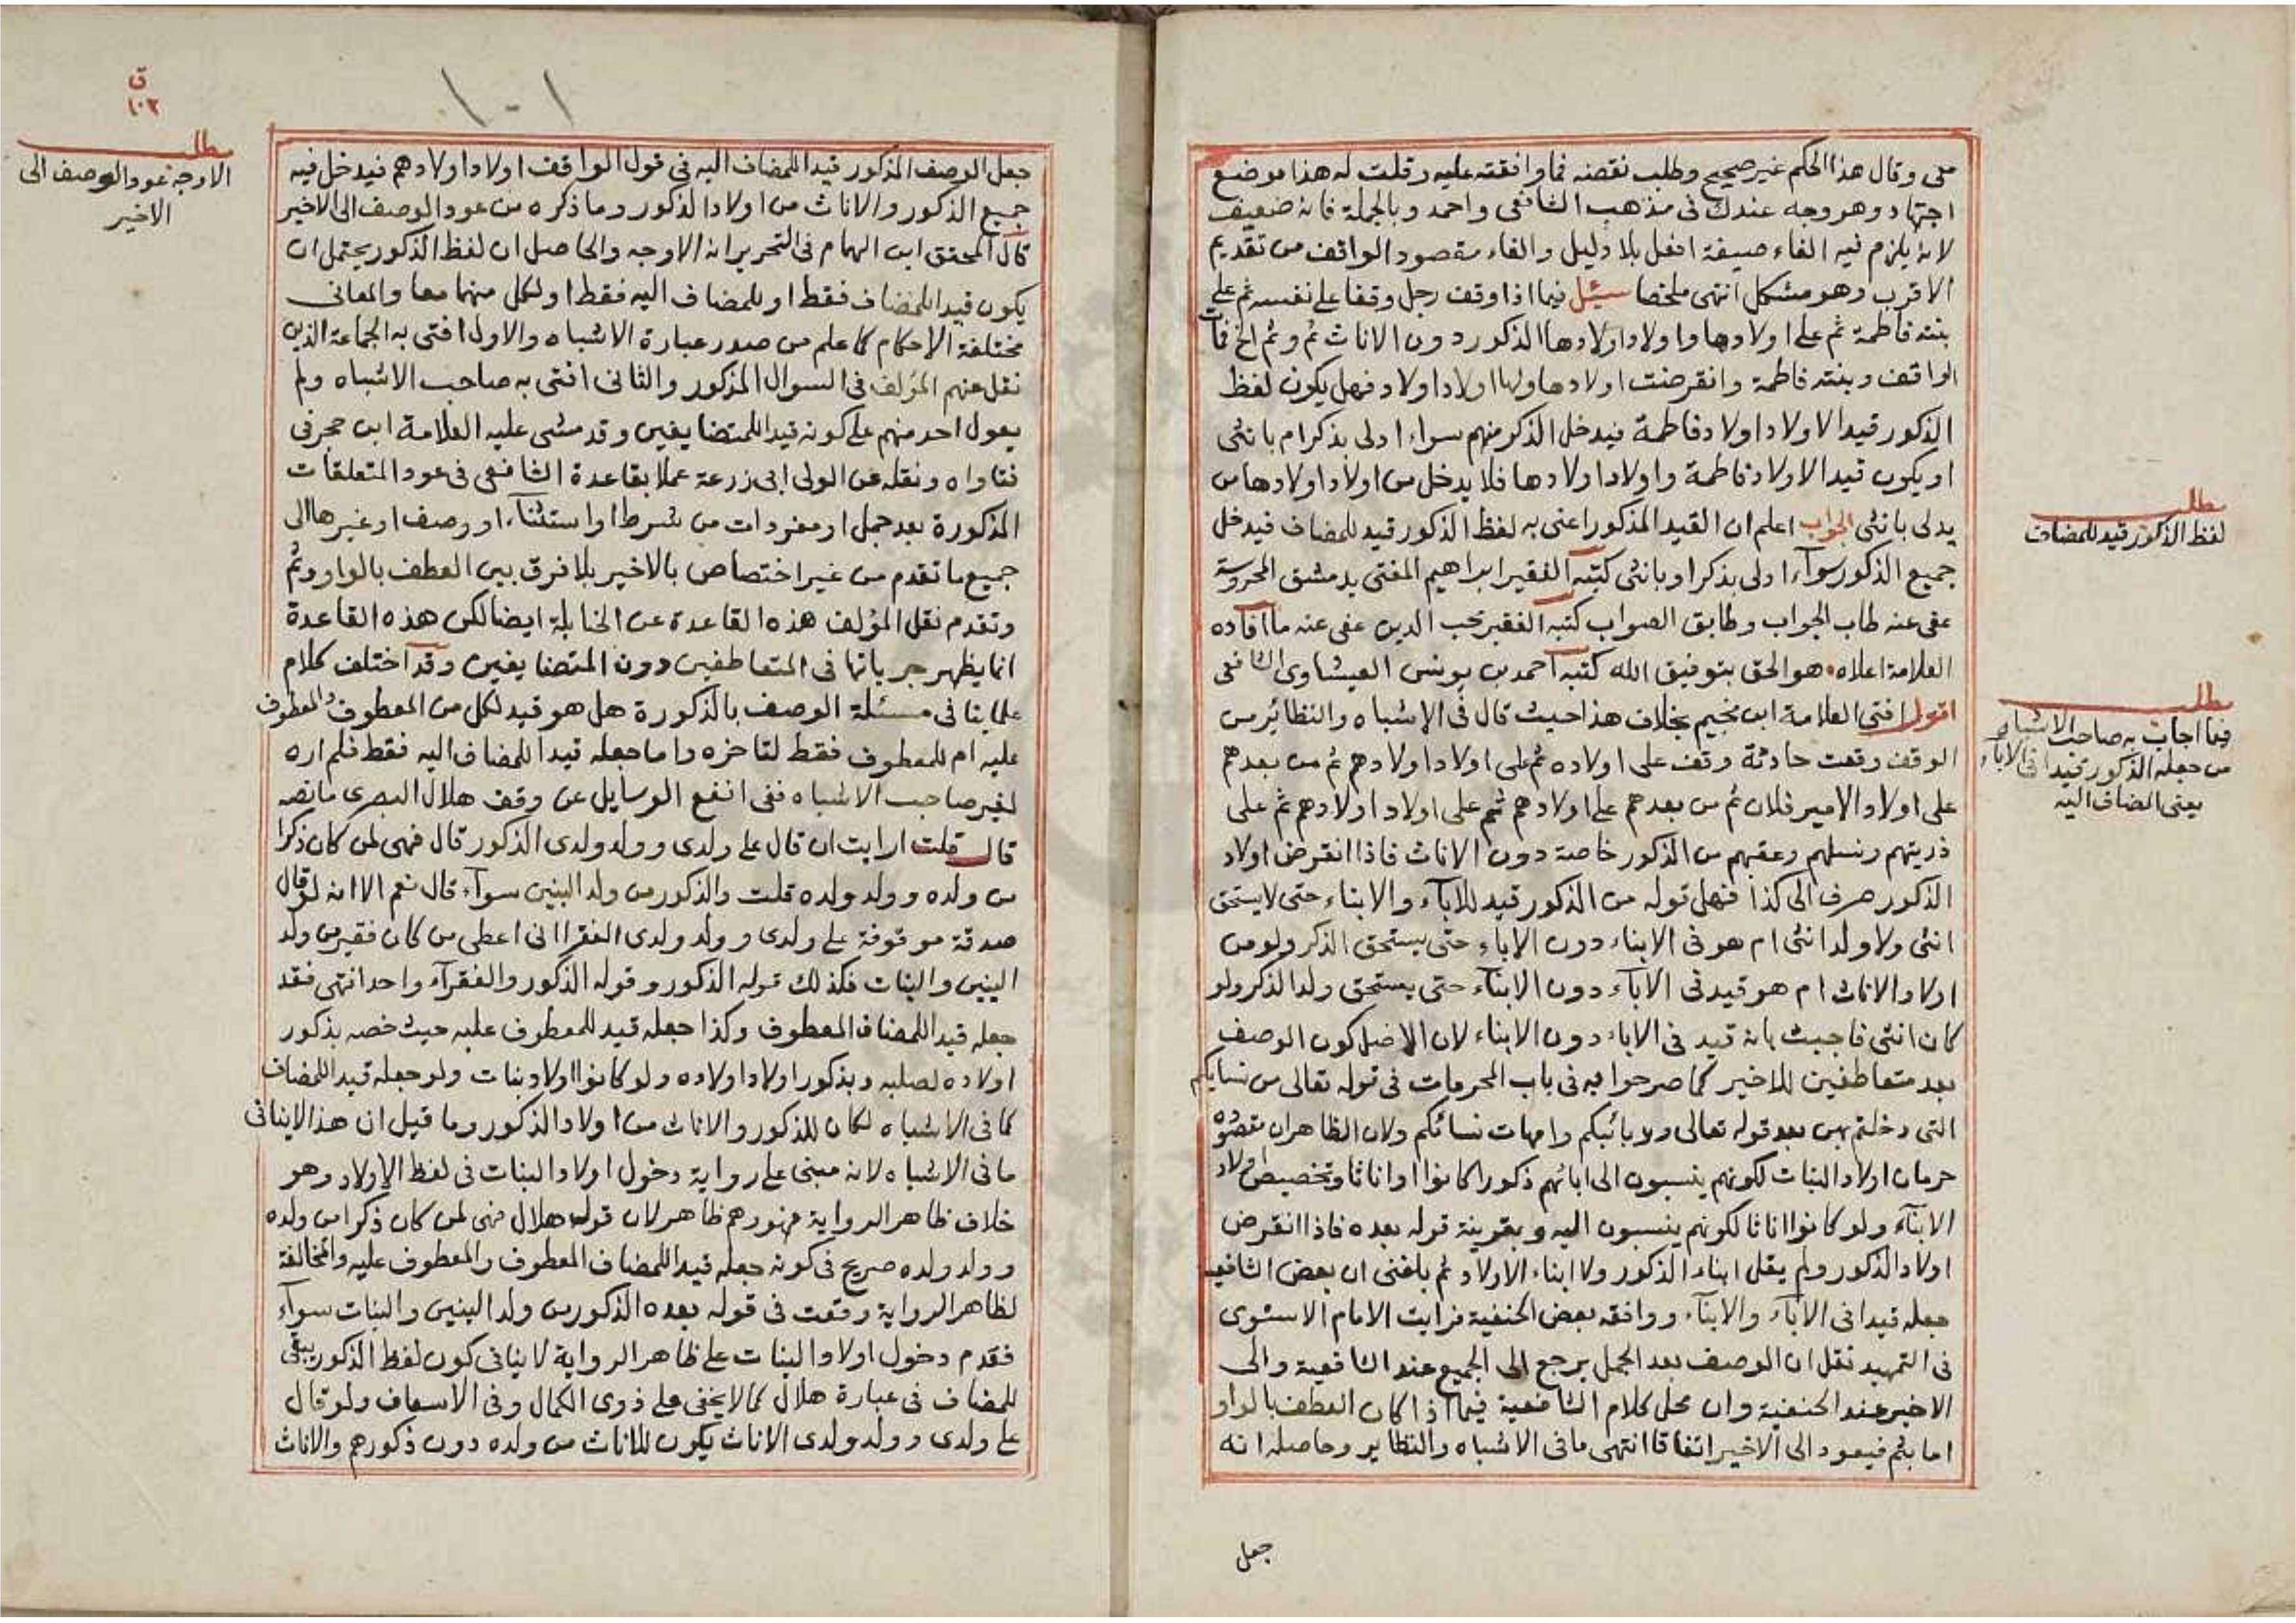 منى وقال هذا الحكم غير صحيح وطلب نقضه فما وافقته عليه وقلت له هذا موضع
اجتهاد وهو وجه عندك فى مذهب الشافعى واحمد وبالجملة فانه ضعيف
لانه يلزم فيه الغاء صيغة افعل بلا دليل والغاء مقصود الواقف من تقديم
الاقرب وهو مشكل انتهى ملخصا سئل فيما اذا وقف رجل وقفا على نفسه ثم على
بنته فاطمة ثم على اولادها واولاد اولادها الذكور دون الاناث ثم وثم الخ فمات
الواقف وبنته فاطمة وانقرضت اولادها ولها اولاد اولاد فهل يكون لفظ
الذكور قيدا لاولاد اولاد فاطمة فيدخل الذكر منهم سواء ادلى بذكر ام بانثى
او يكون قيدا لاولاد فاطمة واولاد اولادها فلا يدخل من اولاد اولادها من
يدلى بانثى الجواب اعلم ان القيد المذكور اعنى به لفظ الذكور قيد للمضاف فيدخل
جميع الذكور سوآء ادلى بذكر او بانثى كتبه الفقير ابراهيم المفتى بدمشق المحروسة
عفى عنه طاب الجواب وطابق الصواب كتبه الفقير محب الدين عفى عنه ما افاده
العلامة اعلاه هو الحق بتوفيق الله كتبه احمد بن يونس العيشاوى الشافعى
اقول افتى العلامة ابن نجيم بخلاف هذا حيث قال فى الاشباه والنظائر من
الوقف وقعت حادثة وقف على اولاده ثم على اولاد اولادهم ثم من بعدهم
على اولاد الامير فلان ثم من بعدهم على اولادهم ثم على اولاد اولادهم ثم على
ذريتهم ونسلهم وعقبهم من الذكور خاصة دون الاناث فاذا انقرض اولاد
الذكور صرف الى كذا فهل قوله من الذكور قيد للاباء والابناء حتى لا يستحق
انثى ولا ولد انثى ام هو فى الابناء دون الاباء حتى يستحق الذكر ولو من
اولاد الاناث ام هو قيد فى الاباء دون الابناء حتى يستحق ولد الذكر ولو
كان انثى فاجبت بانه قيد فى الاباء دون الابناء لان الاصل كون الوصف
بعد متعاطفين للاخير كما صرحوا به فى باب المحرمات فى قوله تعالى من نسايكم
التى دخلتم بهن بعد قوله تعالى وربائبكم وامهات نسائكم ولان الظاهر ان مقصوده
حرمان اولاد البنات لكونهم ينسبون الى ابائهم ذكورا كانوا او اناثا وتخصيص اولاد
الابناء ولو كانوا اناثا لكونهم ينسبون اليه وبقرينة قوله بعده فاذا انقرض
اولاد الذكور ولم يقل ابناء الذكور ولا ابناء الاولاد ثم بلغنى ان بعض الشافعية
جعله قيدا فى الاباء والابناء ووافقه بعض الحنفية فرايت الامام الاسنوى
فى التمهيد نقل ان الوصف بعد الجمل يرجع الى الجميع عند الشافعية والى
الاخير عند الحنفية وان محل كلام الشافعية فيما اذا كان العطف بالواو
اما بثم فيعود الى الاخير اتفاقا انتهى ما فى الاشباه والنظاير وحاصله انه
جعل
مطلب
لفظ الذكور قيد للمضاف
مطلب
فيما اجاب به صاحب الاشباه
من جعله الذكور قيدا فى الاباء
يعنى المضاف اليه
ق
١٠٢
١٠١
جعل الوصف المذكور قيدا للمضاف اليه فى قول الواقف اولاد اولادهم فيدخل فيه
جميع الذكور والاناث من اولاد الذكور وما ذكره من عود الوصف الى الاخير
قال المحقق ابن الهمام فى التحرير انه الاوجه والحاصل ان لفظ الذكور يحتمل ان
يكون قيدا للمضاف فقط او للمضاف اليه فقط او لكل منهما معا والمعانى
مختلفة الاحكام كما علم من صدر عبارة الاشباه والاول افتى به الجماعة الذين
نقل عنهم المؤلف فى السوال المذكور والثانى افتى به صاحب الاشباه ولم
يعول احد منهم على كونه قيدا للمتضايفين وقد مشى عليه العلامة ابن حجر فى
فتاواه ونقله عن الولى ابى زرعة عملا بقاعدة الشافعى فى عود المتعلقات
المذكورة بعد جمل او مفردات من شرط او استثناء او وصف او غيرها الى
جميع ما تقدم من غير اختصاص بالاخير بلا فرق بين العطف بالواو وثم
وتقدم نقل المؤلف هذه القاعدة عن الحنابلة ايضا لكن هذه القاعدة
انما يظهر جريانها فى المتعاطفين دون المتضايفين وقد اختلف كلام
علماينا فى مسئلة الوصف بالذكورة هل هو قيد لكل من المعطوف والمعطوف
عليه ام للمعطوف فقط لتاخره واما جعله قيدا للمضاف اليه فقط فلم اره
لغير صاحب الاشباه ففى انفع الوسايل عن وقف هلال البصرى ما نصه
قال قلت ارايت ان قال على ولدى وولد ولدى الذكور قال فهى لمن كان ذكرا
من ولده وولد ولده قلت والذكور من ولد البنين سوآء قال نعم الا انه لو قال
صدقة موقوفة على ولدى وولد ولدى الفقرا انى اعطى من كان فقير من ولد
البنين والبنات فكذلك قوله الذكور وقوله الذكور والفقرآء واحد انتهى فقد
جعله قيدا للمضاف المعطوف وكذا جعله قيد للمعطوف عليه حيث خصه بذكور
اولاده لصلبه وبذكور اولاد اولاده ولو كانوا اولاد بنات ولو جعله قيدا للمضاف
كما فى الاشباه لكان للذكور والاناث من اولاد الذكور وما قيل ان هذا لاينافى
ما فى الاشباه لانه مبنى على رواية دخول اولاد البنات فى لفظ الاولاد وهو
خلاف ظاهر الرواية فهوردهم ظاهر لان قول هلال فهى لمن كان ذكرا من ولده
وولد ولده صريح فى كونه جعله قيدا للمضاف المعطوف والمعطوف عليه والمخالفة
لظاهر الرواية وقعت فى قوله بعده الذكور من ولد البنين والبنات سوآء
فقدم دخول اولاد البنات على ظاهر الرواية لا ينافى كون لفظ الذكور يبقى
للمضاف فى عبارة هلال كما لا يخفى على ذوى الكمال وفى الاسعاف ولو قال
على ولدى وولد ولدى الاناث يكون للاناث من ولده دون ذكورهم والاناث
مطلب
الاوجه عود الوصف الى
الاخير